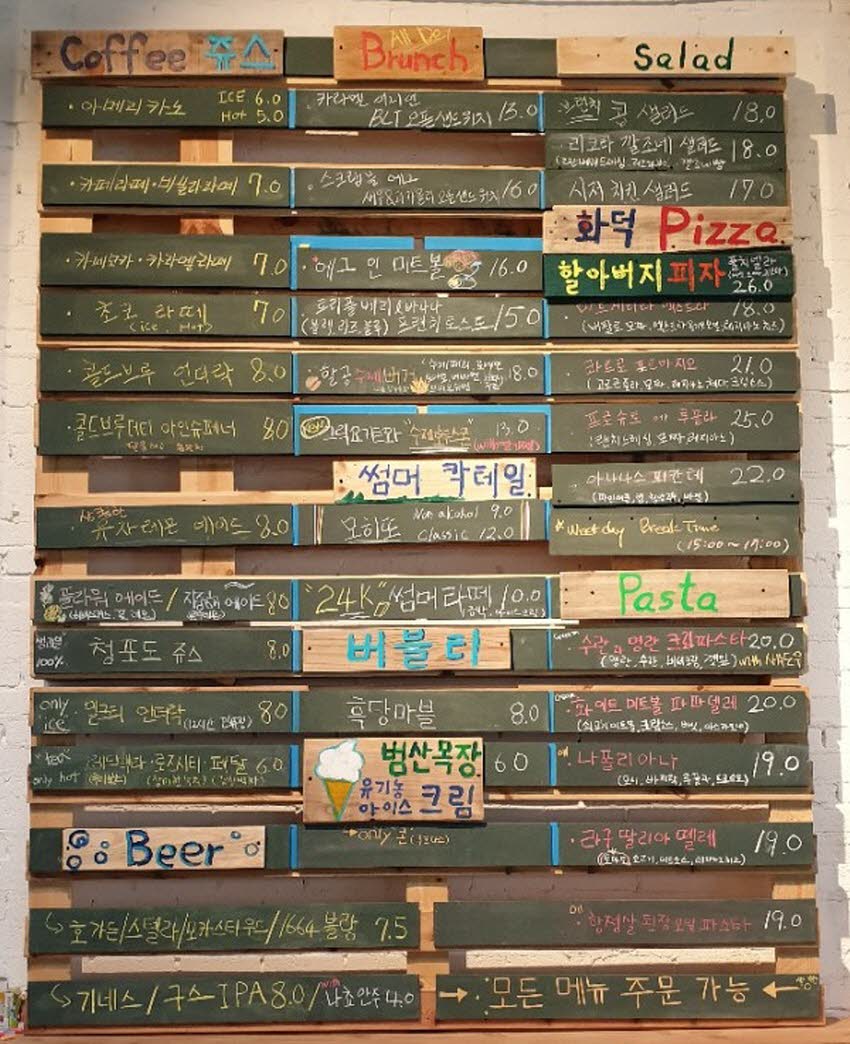 Coffee 쥬스
· 아메리카노 ICE 6.0
Hot 5.0
· 카페라떼 · 바닐라라떼 7.0
· 카페모카 · 카라멜라떼 7.0
· 초코 라떼 7.0
(ice, Hot)
· 콜드브루 언더락 8.0
· 콜드브루 아인슈페너 8.0
상큼한
유자 레몬 에이드 8.0
플라워 에이드 / 자몽에이드 8.0
생과일 100% 청포도 쥬스 8.0
only ice 밀크티 언더락 (12시간 냉침) 8.0
"tea" only hot 루즈시티 · 페탈 6.0
Beer
호가든/스텔라/모카스타우트/1664블랑 7.5
기네스/구스IPA 8.0/with 나쵸안주 4.0
All Day
Brunch
· 카라멜 어니언
BLT 오픈샌드위치 15.0
· 스크램블 에그
새우&과카몰리 오픈샌드위치 16.0
· 에그 인 미트볼 16.0
트리플베리&바나나
(블랙, 라즈, 블루) 프렌치토스트 15.0
· 수제버거 18.0
그릭요거트와 "수제" 13.0
썸머 칵테일
모히또 Non alcohol 9.0
Classic 12.0
"24K" 썸머라떼 10.0
버블티
흑당마블 8.0
범산목장
유기농
아이스크림 6.0
→ only 콘
Salad
브런치 콩 샐러드 18.0
· 리코타 깔조네 샐러드 18.0
시저 치킨 샐러드 17.0
화덕 Pizza
할아버지피자 26.0
18.0
· 콰트로 포르마지오 21.0
· 프로슈토 에 루꼴라 25.0
· 아나나스 피칸테 22.0
* Week day Break Time
(15:00~17:00)
Pasta
· 수란 & 명란 크림파스타 20.0
· 화이트 미트볼 파파델레 20.0
· 나폴리아나 19.0
· 라구 딸리아뗄레 19.0
· 항정살 된장오일 파스타 19.0
→ · 모든 메뉴 주문 가능 ←